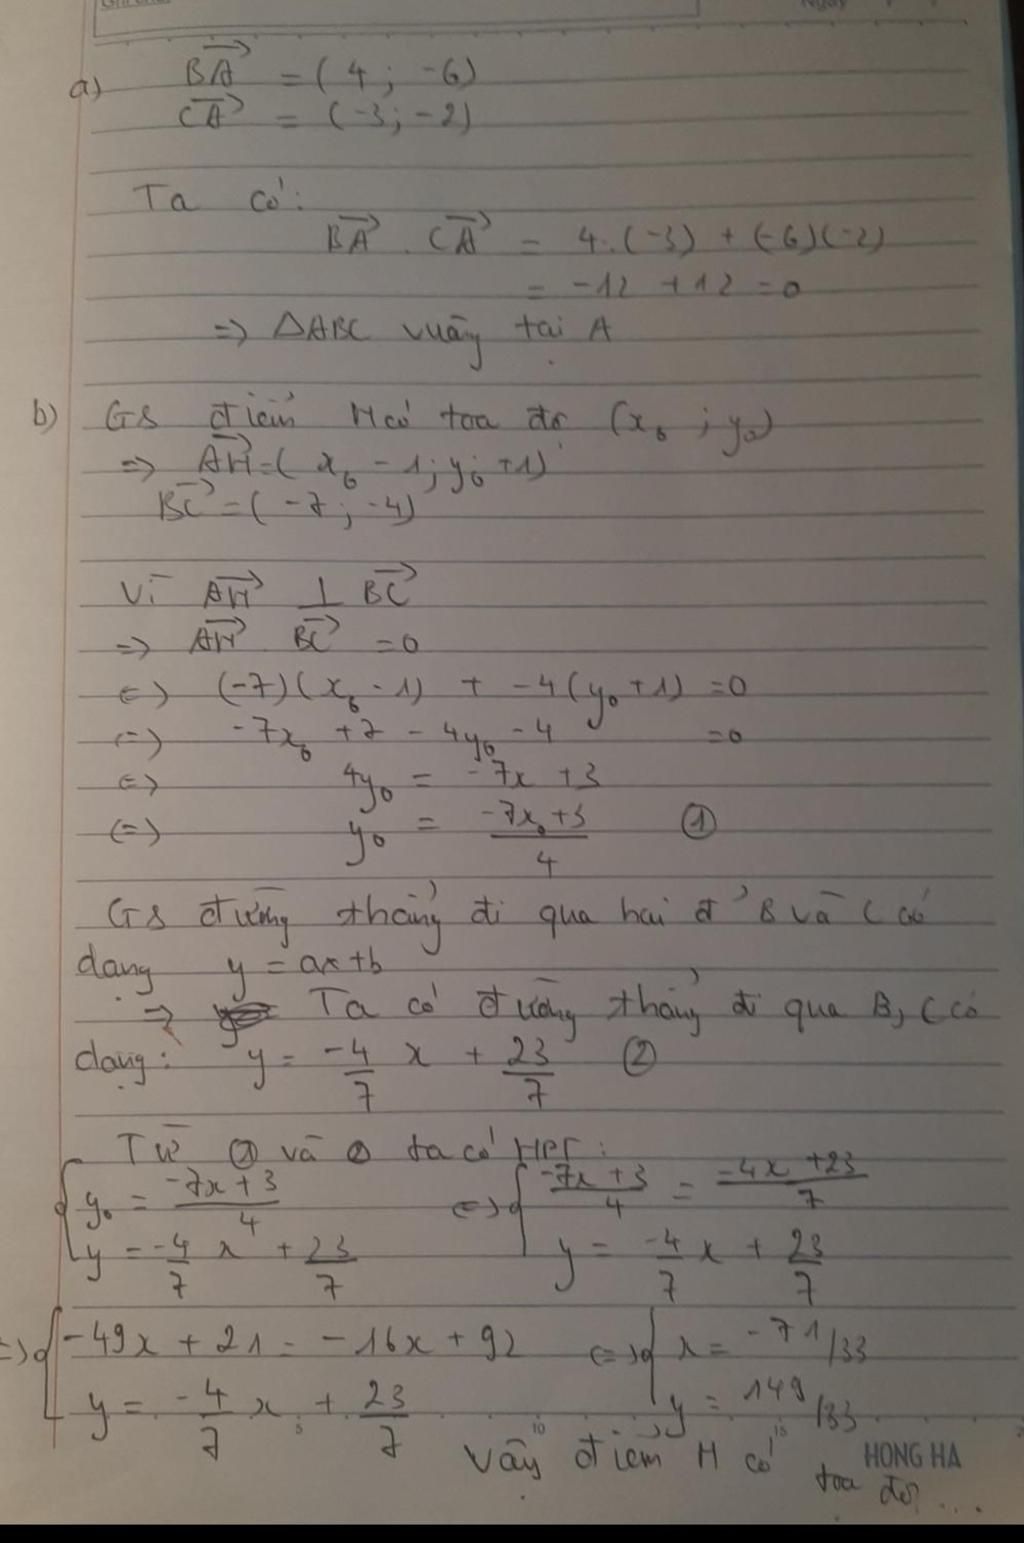 a) BA→ = (4; -6)
CA→ = (-3; -2)
Ta có:
BA→ . CA→ = 4.(-3) + (-6)(-2)
= -12 + 12 = 0
=> ΔABC vuông tại A
b) GS điểm H có tọa độ (x₀; y₀)
=> AH→ = (x₀ - 1; y₀ + 1)
BC→ = (-7; -4)
Vì AH→ ⊥ BC→
=> AH→ BC→ = 0
<=> (-7)(x₀ - 1) + -4(y₀ + 1) = 0
<=> -7x₀ + 7 - 4y₀ - 4 = 0
<=> 4y₀ = -7x + 3
<=> y₀ = (-7x₀ + 3)/4 ①
GS đường thẳng đi qua hai đ' B và C có
dạng y = ax + b
=> Ta có đường thẳng đi qua B, C có
dạng: y = -4/7 x + 23/7 ②
Từ ① và ② ta có HPT:
{ y₀ = (-7x + 3)/4 <=> { (-7x + 3)/4 = (-4x + 23)/7
y = -4/7 x + 23/7 y = -4/7 x + 23/7
=> { -49x + 21 = -16x + 92 <=> { x = -71/33
y = -4/7 x + 23/7 y = 149/33
Vậy điểm H có tọa độ ...
HONG HA